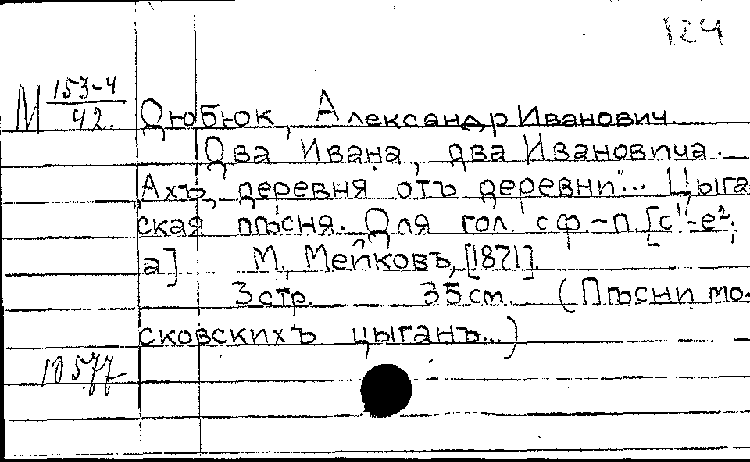 124
М 153-4/42. Дюбюк, Александр Иванович.
Два Ивана, два Ивановича.
Ахъ, деревня отъ деревни"... Цыган
ская пѣсня. Для гол. с ф-п. [c¹-e²;
a] М, Мейковъ, [1871].
3 стр. 35 cm. (Пѣсни мо-
сковскихъ цыганъ...)
10577-